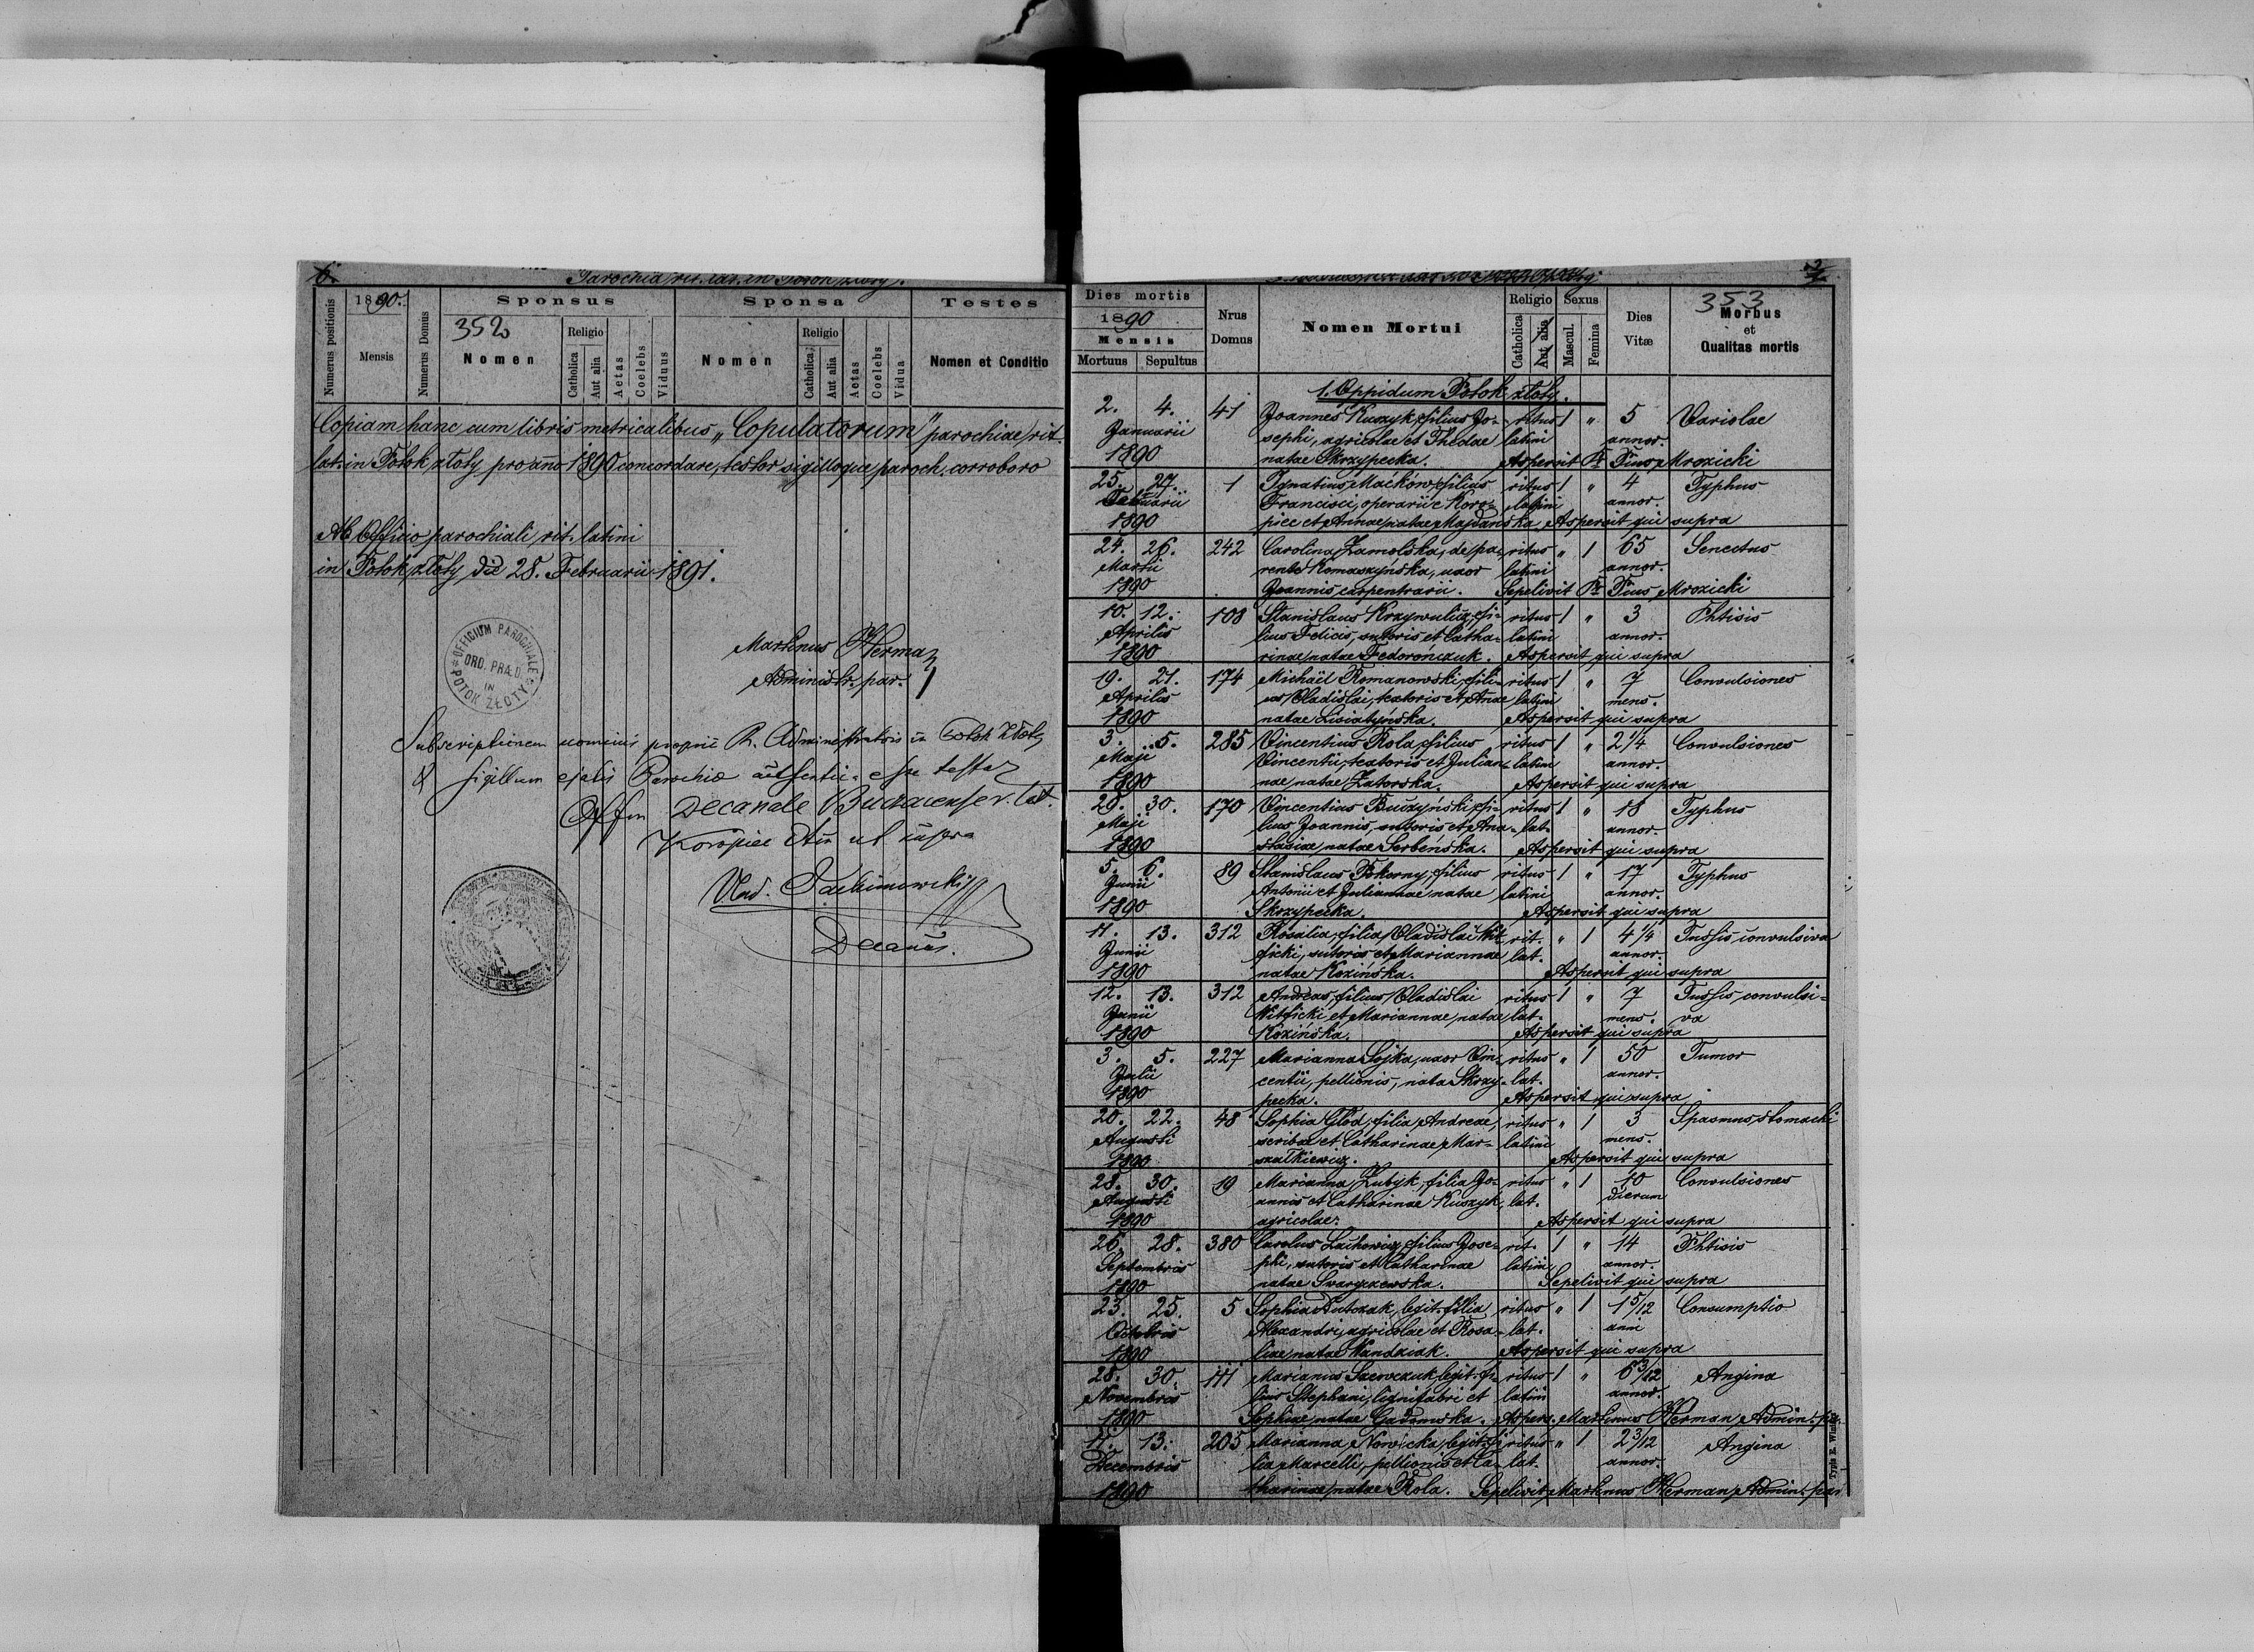 6.
Parochia rit. lat. in Potok złoty.
Numerus positionis
1890.
Mensis
Numerus Domus
Sponsus
352
Nomen
Religio
Catholica
Aut alia
Aetas
Coelebs
Viduus
Sponsa
Nomen
Religio
Catholica
Aut alia
Aetas
Coelebs
Vidua
Testes
Nomen et Conditio
Copiam hanc cum libris metricalibus „Copulatorum" parochiae rit.
lat. in Potok złoty pro anno 1890 concordare, testor sigilloque paroch. corroboro
Ab Officio parochiali rit. latini
in Potok złoty die 28. Februarii 1891.
OFFICIUM PAROCHIALE
ORD. PRÆD.
IN
POTOK ZŁOTY
Martinus Herman
Administr. par.
Subscriptionem nominis proprii R. Administratoris in Potok Złoty
& sigillum ejatis Parochiæ authentic. esse testor
Offm Decanale Buczacense r. lat.
Koropiec dtto ut supra
Vlad.
Decanus.
Dies mortis
1890
Mensis
Mortuus Sepultus
Nrus Domus
Nomen Mortui
Religio
Catholica
Aut alia
Sexus
Mascul.
Femina
Dies Vitæ
353
Morbus
et
Qualitas mortis
1. Oppidum Potok złoty.
2. 4. 41 Joannes Kuszyk, filius Jo- ritus 1 " 5 Variolae
Januarii sephi, agricolae et Theclae latini annor.
1890 natae Skrzypecka. Aspersit Fr. Pius Mrozicki
25. 27. 1 Ignatius Maćków, filius ritus 1 " 4 Typhus
Februarii Francisci, operarii e Koro- latini annor.
1890 piec et Annae natae Majdańska Aspersit qui supra
24. 26. 242 Carolina Zamolska, de pa- ritus " 1 65 Senectus
Martii rente Romaszyńska, uxor latini annor.
1890 Joannis carpentrarii. Sepelivit Fr. Pius Mrozicki
10. 12. 108 Stanislaus Krzywulicz, fi- ritus 1 " 3 Phtisis
Aprilis lius Felicis, sutoris et Catha- latini annor.
1890 rinae natae Fedorończuk. Aspersit qui supra
19. 21. 174 Michaël Romanowski, fili- ritus 1 " 7 Convulsiones
Aprilis us Vladislai, textoris et Annae latini mens.
1890 natae Lisiatyńska. Aspersit qui supra
3. 5. 285 Vincentius Rola, filius ritus 1 " 2 1/4 Convulsiones
Maji Vincentii, textoris et Julian- latini annor.
1890 nae natae Zatorska. Aspersit qui supra
28. 30. 170 Vincentius Buczyński, fi- ritus 1 " 18 Typhus
Maji lius Joannis, sutoris et Ana- lat. annor.
1890 stasiae, natae Serbeńska. Aspersit qui supra
5. 6. 89 Stanislaus Pokorny, filius ritus 1 " 17 Typhus
Junii Antonii et Juliannae natae latini annor.
1890 Skrzypecka. Aspersit qui supra
11. 13. 312 Rosalia, filia Vladislai Wit- rit. " 1 4 1/4 Tussis convulsiva
Junii ficki, sutoris et Mariannae lat. annor.
1890 natae Kozińska. Aspersit qui supra
12. 13. 312 Andreas, filius Vladislai ritus 1 " 7 Tussis convulsi-
Junii Witficki et Mariannae, natae lat. mens. va
1890 Kozińska. Aspersit qui supra
3. 5. 227 Marianna Sojka, uxor Vin- ritus " 1 50 Tumor
Julii centii, pellionis, nata Skrzy- lat. annor.
1890 pecka. Aspersit qui supra
20. 22. 48 Sophia Głód, filia Andreae, ritus " 1 3 Spasmus stomachi
Augusti scribae et Catharinae Mar- latini mens.
1890 szałkiewicz. Aspersit qui supra
28. 30. 19 Marianna Zubyk, filia Jo- ritus " 1 10 Convulsiones
Augusti annis et Catharinae Kuszyk, lat. dierum
1890 agricolae. Aspersit qui supra
26. 28. 380 Carolus Lachowicz, filius Jose- rit. 1 " 14 Phtisis
Septembris phi, sutoris et Catharinae latini annor.
1890 natae Swaryczewska. Sepelivit qui supra
23. 25. 5 Sophia Tutczak, legit. filia ritus " 1 1 5/12 Consumptio
Octobris Alexandri, agricolae et Rosa- lat. anni
1890 liae natae Wandziak. Aspersit qui supra
28. 30. 111 Marianus Szewczuk legit. fi- ritus 1 " 6 3/12 Angina
Novembris lius Stephani, lignifabri et latini annor.
1890 Sophiae natae Gadomska. Aspers. Martinus Herman Admin. par.
11. 13. 205 Marianna Nowicka, legit. fi- ritus " 1 2 3/12 Angina
Decembris lia Marcelli, pellionis et Ca- lat. annor.
1890 tharinae natae Rola. Sepelivit Martinus Herman Admin. par